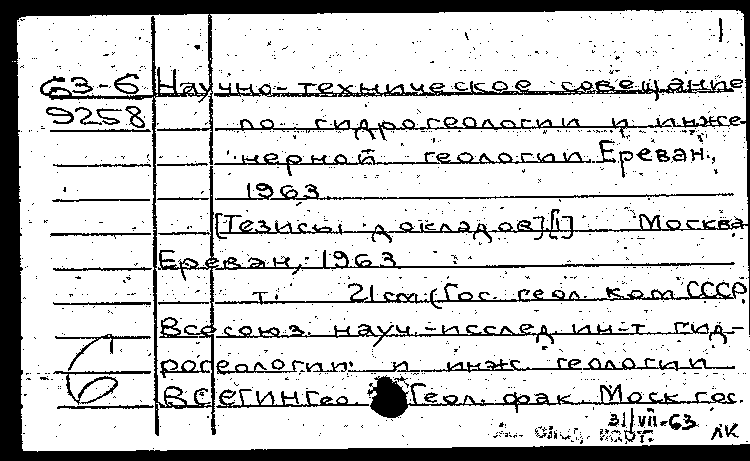 1
63-6 Научно-техническое совещание
9258 по гидрогеологии и инже-
нерной геологии. Ереван.,
1963
[Тезисы докладов][1] Москва
Ереван, 1963
т. 21см. (Гос. геол. ком СССР
Всесоюз. науч.-исслед. ин-т гид-
рогеологии и инж. геологии
ВСЕГИНГео Геол. фак. Моск. гос.
б
31/VII-63
карт. ЛК